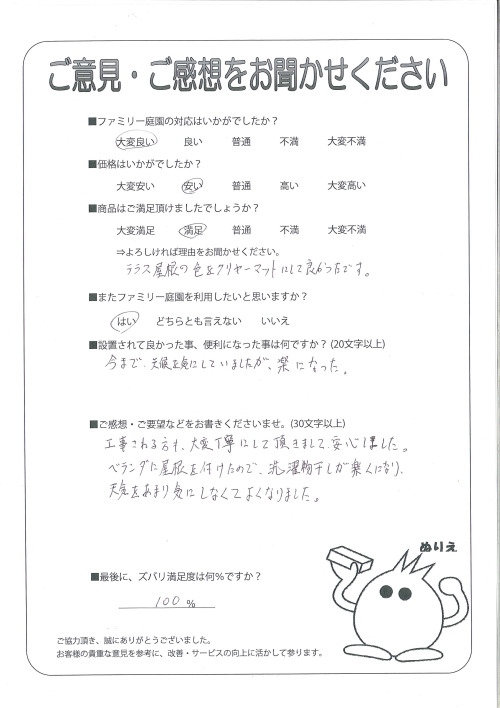 ご意見・ご感想をお聞かせください
■ファミリー庭園の対応はいかがでしたか？
大変良い 良い 普通 不満 大変不満
■価格はいかがでしたか？
大変安い 安い 普通 高い 大変高い
■商品はご満足頂けましたでしょうか？
大変満足 満足 普通 不満 大変不満
⇒よろしければ理由をお聞かせください。
テラス屋根の色をクリヤーマットにして良かったです。
■またファミリー庭園を利用したいと思いますか？
はい どちらとも言えない いいえ
■設置されて良かった事、便利になった事は何ですか？(20文字以上)
今まで、天候を気にしていましたが、楽になった。
■ご感想・ご要望などをお書きくださいませ。(30文字以上)
工事される方も、大変丁寧にして頂きまして、安心しました。
ベランダに屋根を付けたので、洗濯物干しが楽になり、
天気をあまり気にしなくてよくなりました。
ぬりえ
■最後に、ズバリ満足度は何%ですか？
100 %
ご協力頂き、誠にありがとうございました。
お客様の貴重な意見を参考に、改善・サービスの向上に活かして参ります。